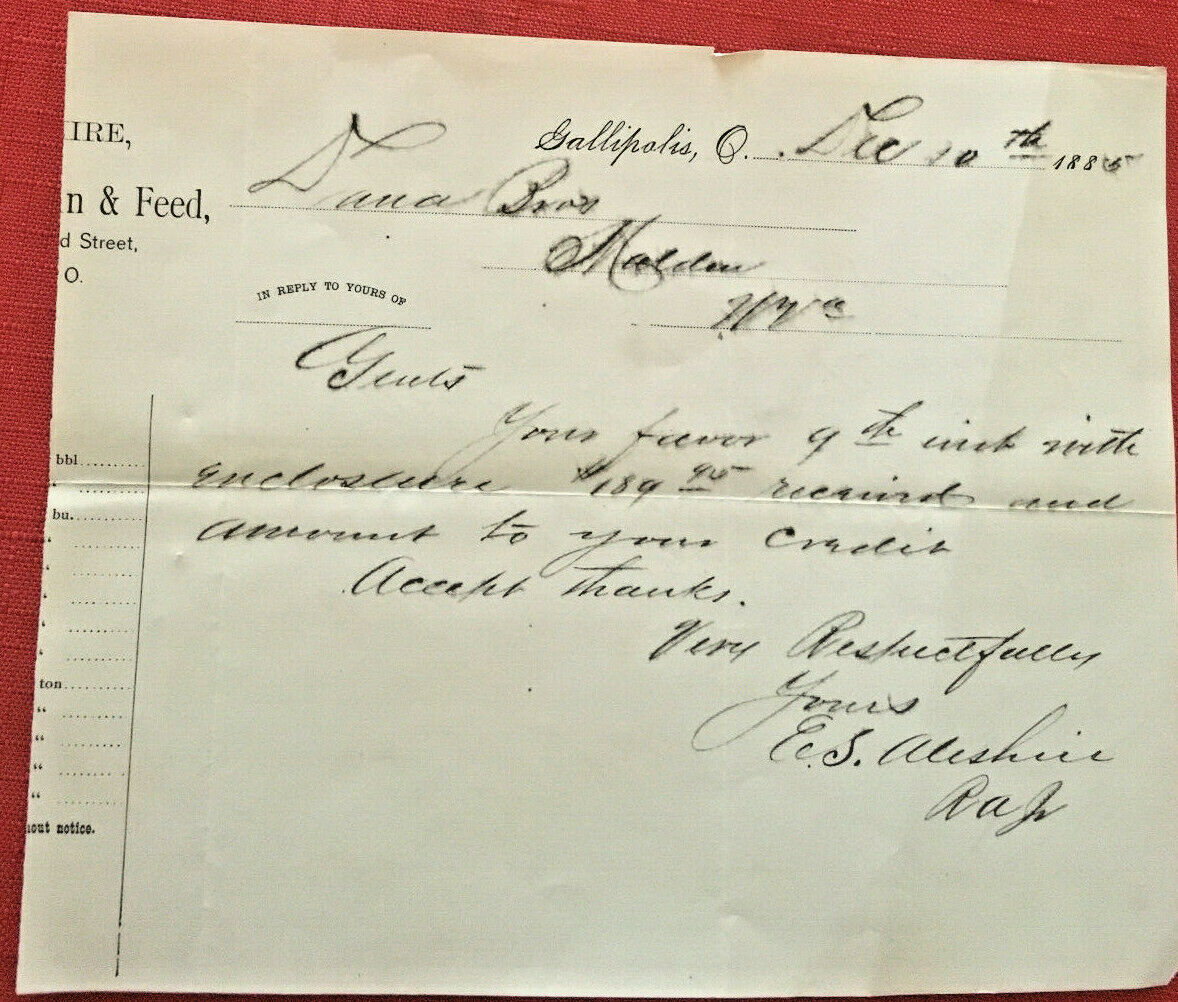 IRE,
n & Feed,
d Street,
O.
Gallipolis, O. Dec 10th 1885
Dana Bros
Malden
W Va
IN REPLY TO YOURS OF
Gents
Your favor 9th inst with
enclosure $189 95 received and
amount to your credit
Accept thanks.
Very Respectfully
Yours
E.S. Aleshire
bbl
"
bu.
"
"
"
"
"
ton
"
"
"
"
out notice.